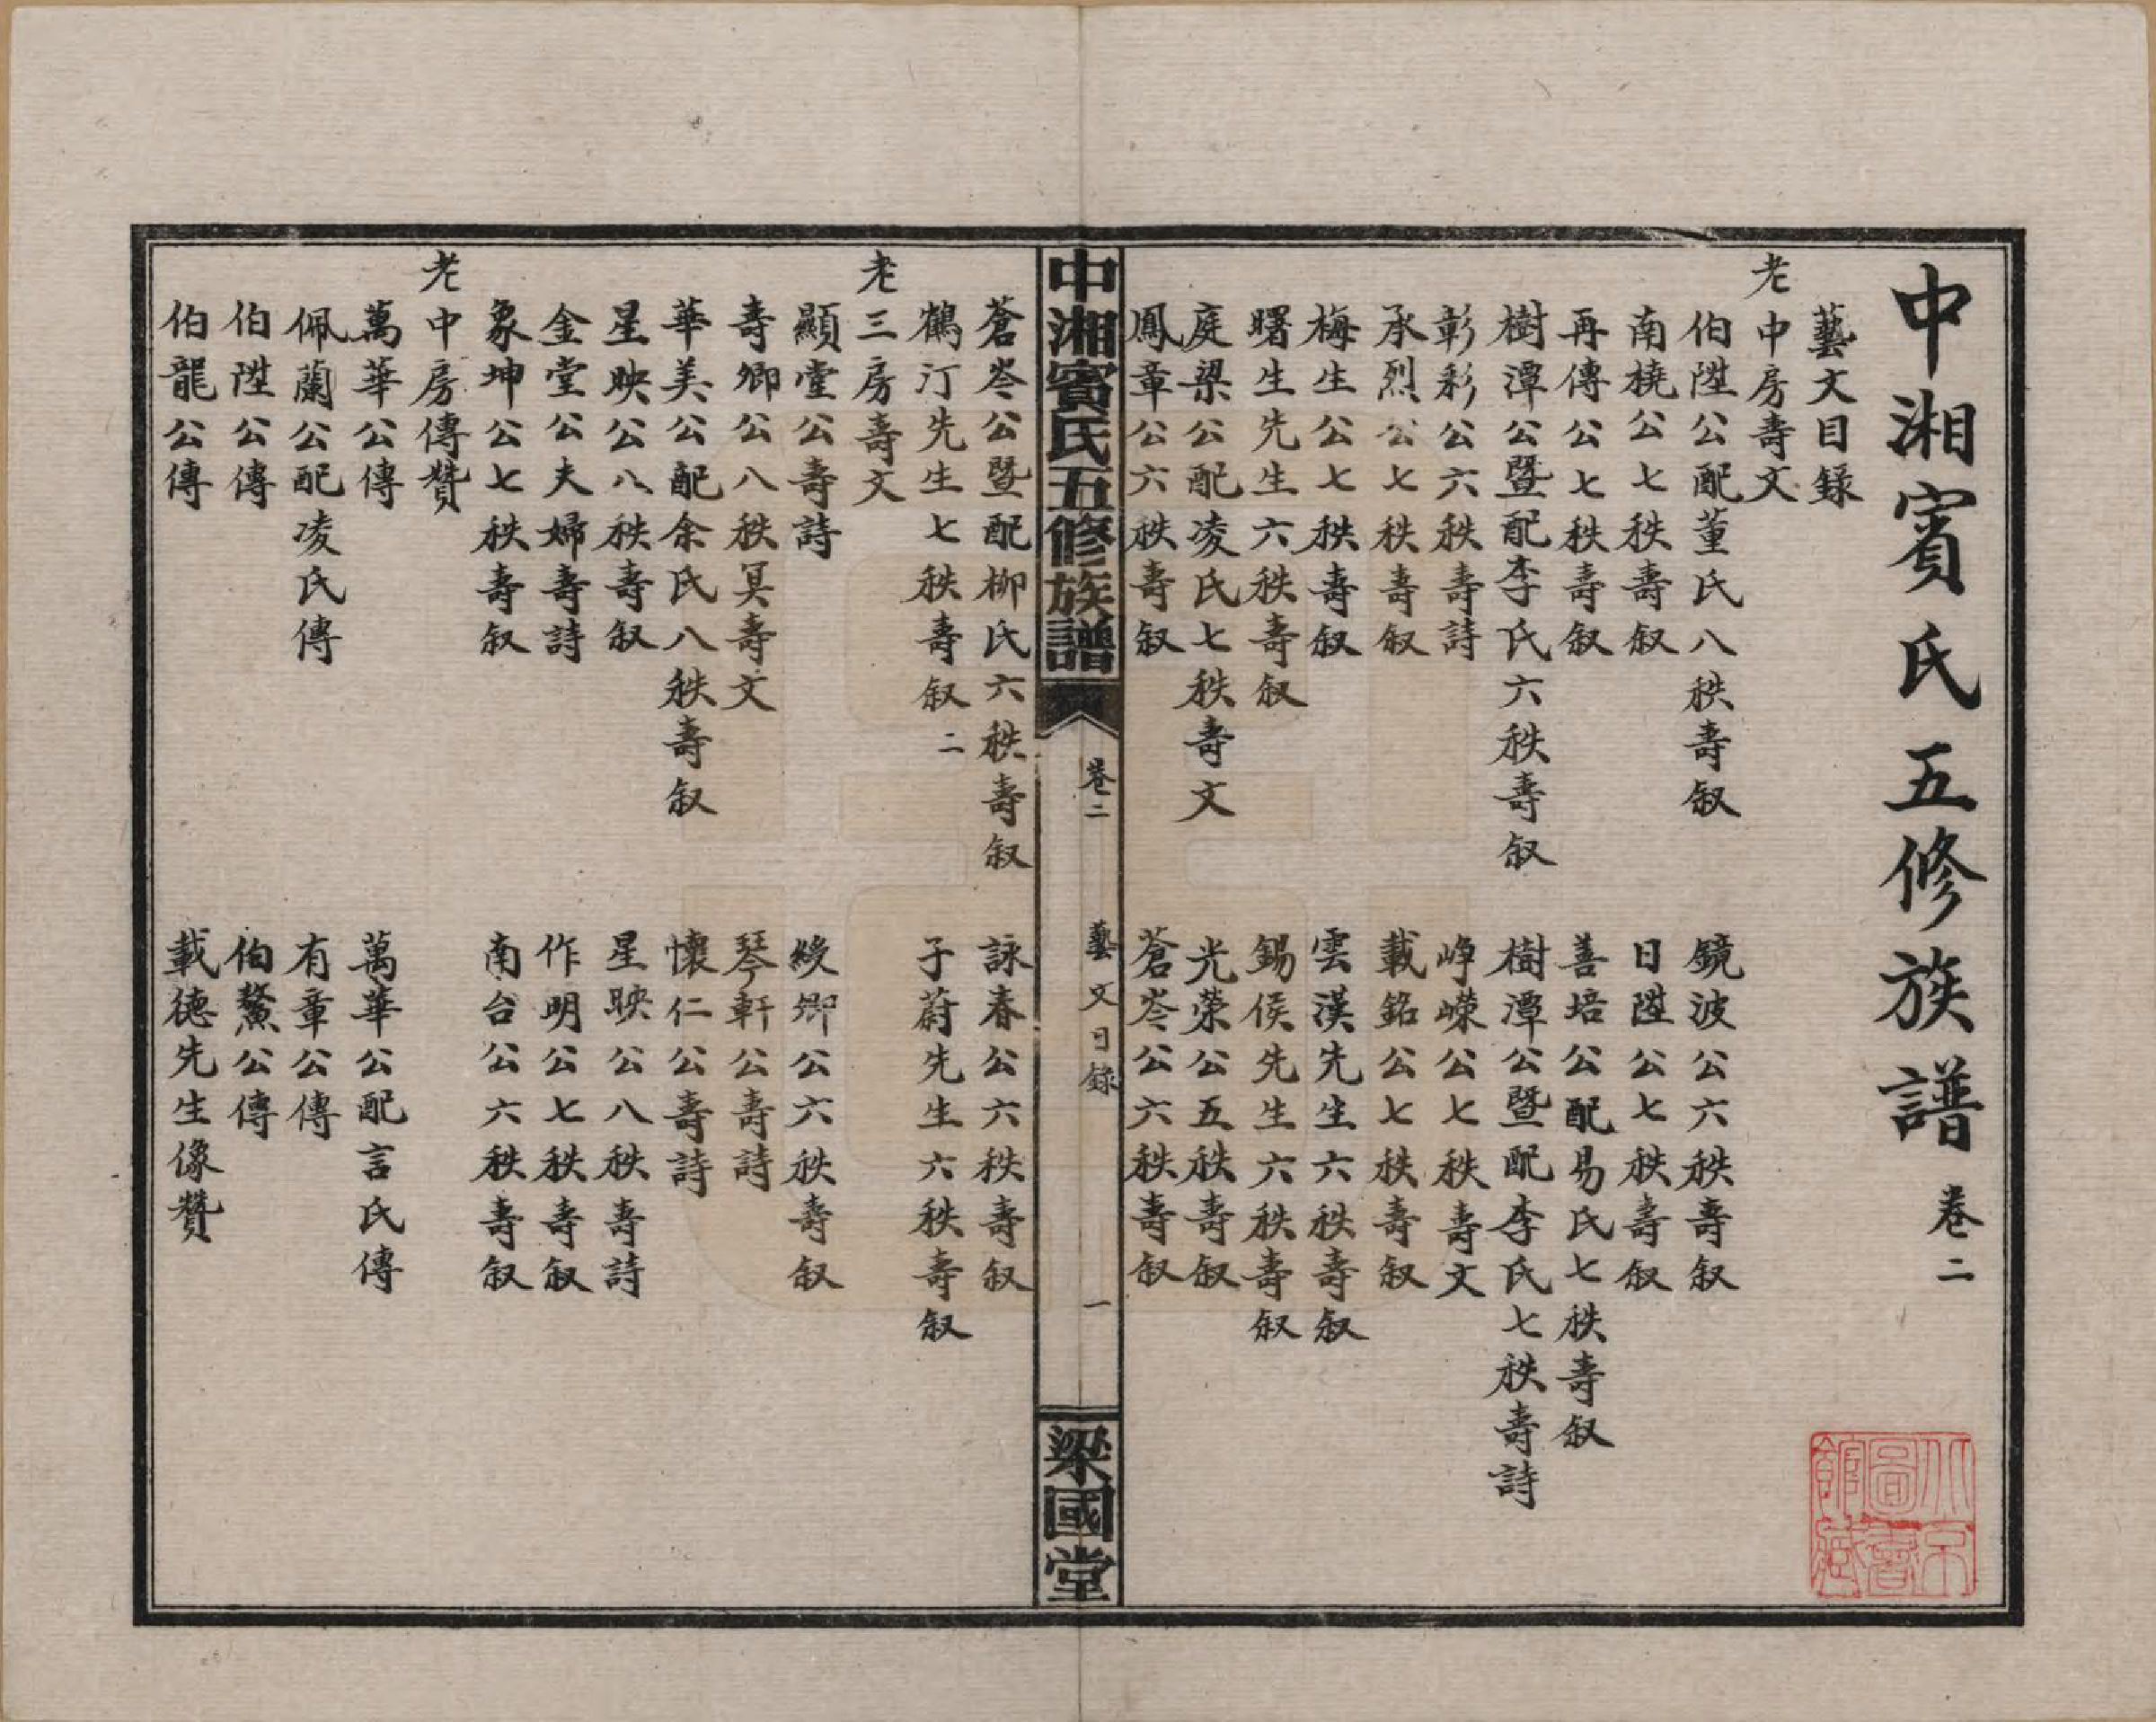 中湘賓氏五修族譜 卷二
藝文目錄
老中房壽文
伯陞公配董氏八秩壽叙 鏡波公六秩壽叙
南橈公七秩壽叙 日陞公七秩壽叙
再傳公七秩壽叙 善培公配易氏七秩壽叙
樹潭公暨配李氏六秩壽叙 樹潭公暨配李氏七秩壽詩
彰彩公六秩壽詩 崢嶸公七秩壽文
承烈公七秩壽叙 載銘公七秩壽叙
梅生公七秩壽叙 雲漢先生六秩壽叙
曙生先生六秩壽叙 錫侯先生六秩壽叙
庭梁公配凌氏七秩壽文 光荣公五秩壽叙
鳳章公六秩壽叙 蒼岑公六秩壽叙
中湘賓氏五修族譜 卷二 藝文目錄 一 梁國堂
蒼岑公暨配柳氏六秩壽叙 詠春公六秩壽叙
鶴汀先生七秩壽叙二 子蔚先生六秩壽叙
老三房壽文
顯堂公壽詩 綬卿公六秩壽叙
壽卿公八秩冥壽文 琴軒公壽詩
華美公配余氏八秩壽叙 懷仁公壽詩
星映公八秩壽叙 星映公八秩壽詩
金堂公夫婦壽詩 作明公七秩壽叙
象坤公七秩壽叙 南台公六秩壽叙
老中房傳贊
萬華公傳 萬華公配言氏傳
佩蘭公配凌氏傳 有章公傳
伯陞公傳 伯鰲公傳
伯龍公傳 載德先生像贊
北京圖書館藏